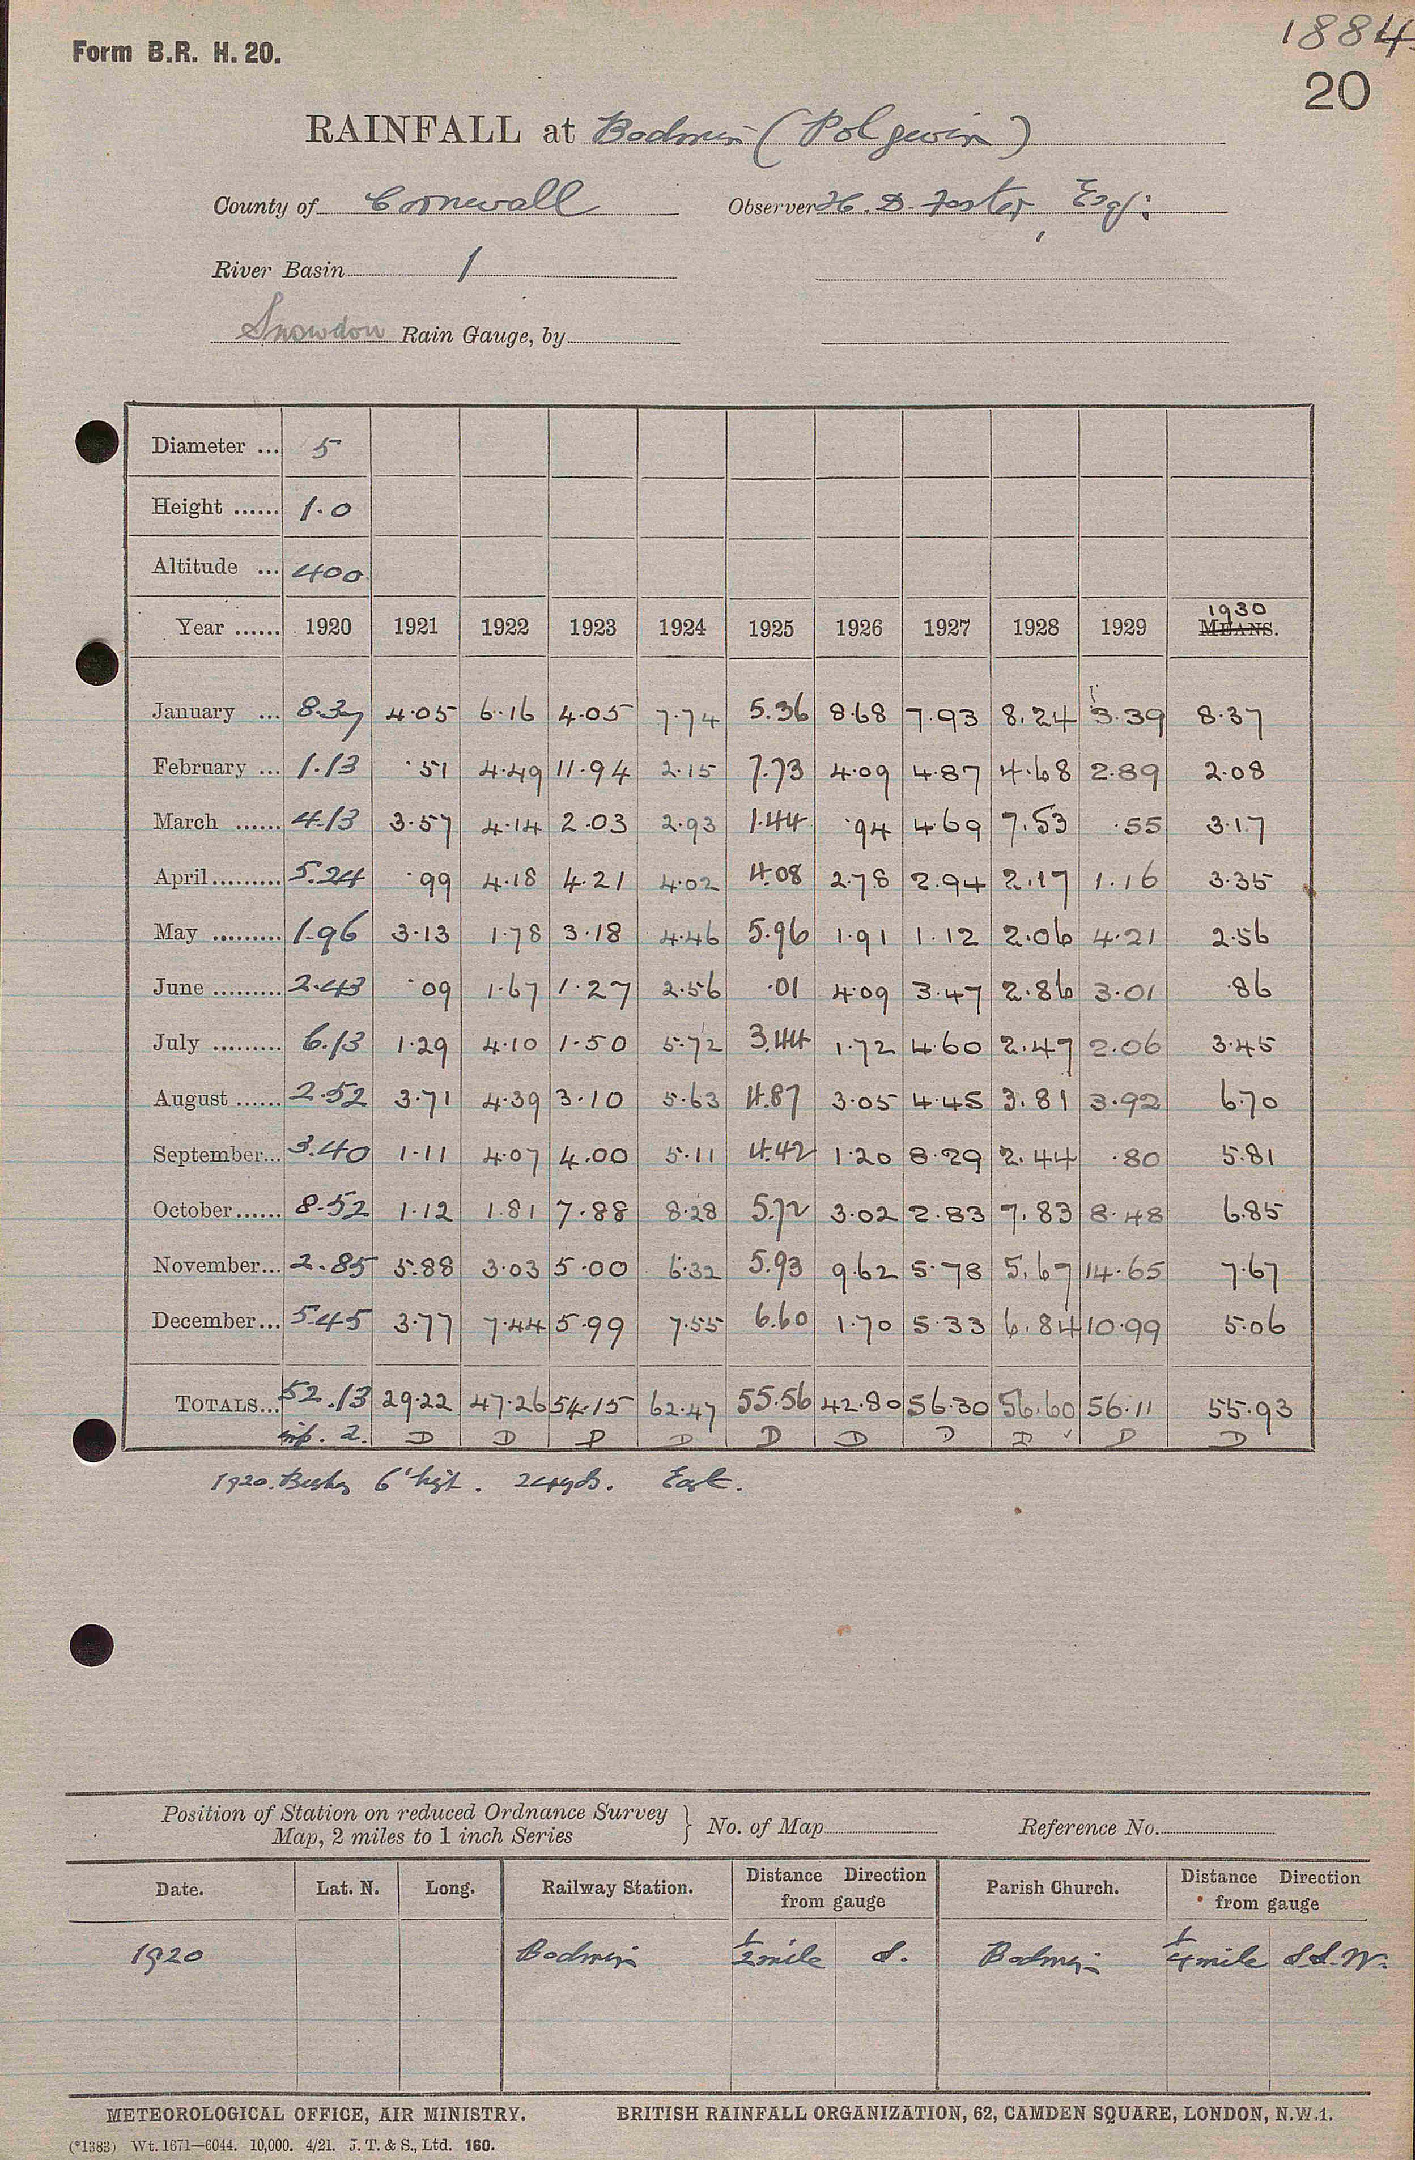 1884
Form B.R. H. 20.
20
RAINFALL at Bodmin (Polgwin)
County of Cornwall Observer H. D. Foster, Esq:
River Basin 1
Snowdon Rain Gauge, by
Diameter ... 5
Height ...... 1.0
Altitude ... 400
Year ...... 1920 1921 1922 1923 1924 1925 1926 1927 1928 1929 1930 MEANS.
January ... 8.37 4.05 6.16 4.05 7.74 5.36 8.68 7.93 8.24 3.39 8.37
February ... 1.13 .51 4.49 11.94 2.15 7.73 4.09 4.87 4.68 2.89 2.08
March ...... 4.13 3.57 4.14 2.03 2.93 1.44 .94 4.69 7.53 .55 3.17
April ......... 5.24 .99 4.18 4.21 4.02 4.08 2.78 2.94 2.17 1.16 3.35
May ......... 1.96 3.13 1.78 3.18 4.46 5.96 1.91 1.12 2.06 4.21 2.56
June ......... 2.43 .09 1.67 1.27 2.56 .01 4.09 3.47 2.86 3.01 .86
July ......... 6.13 1.29 4.10 1.50 5.72 3.44 1.72 4.60 2.47 2.06 3.45
August ...... 2.52 3.71 4.39 3.10 5.63 4.87 3.05 4.45 3.81 3.92 6.70
September... 3.40 1.11 4.07 4.00 5.11 4.42 1.20 8.29 2.44 .80 5.81
October...... 8.52 1.12 1.81 7.88 8.28 5.72 3.02 2.83 7.83 8.48 6.85
November... 2.85 5.88 3.03 5.00 6.32 5.93 9.62 5.78 5.67 14.65 7.67
December... 5.45 3.77 7.44 5.99 7.55 6.60 1.70 5.33 6.84 10.99 5.06
TOTALS... 52.13 29.22 47.26 54.15 62.47 55.56 42.80 56.30 56.60 56.11 55.93
2. D D D D D D D D ✓ D D
1920. Bushes 6' high. 24 yds. East.
Position of Station on reduced Ordnance Survey Map, 2 miles to 1 inch Series } No. of Map Reference No.
Date. Lat. N. Long. Railway Station. Distance Direction from gauge Parish Church. Distance Direction from gauge
1920 Bodmin 1/2 mile S. Bodmin 1/4 mile S.S.W.
METEOROLOGICAL OFFICE, AIR MINISTRY. BRITISH RAINFALL ORGANIZATION, 62, CAMDEN SQUARE, LONDON, N.W.1.
(*1383) Wt. 1671—6044. 10,000. 4/21. J. T. & S., Ltd. 160.